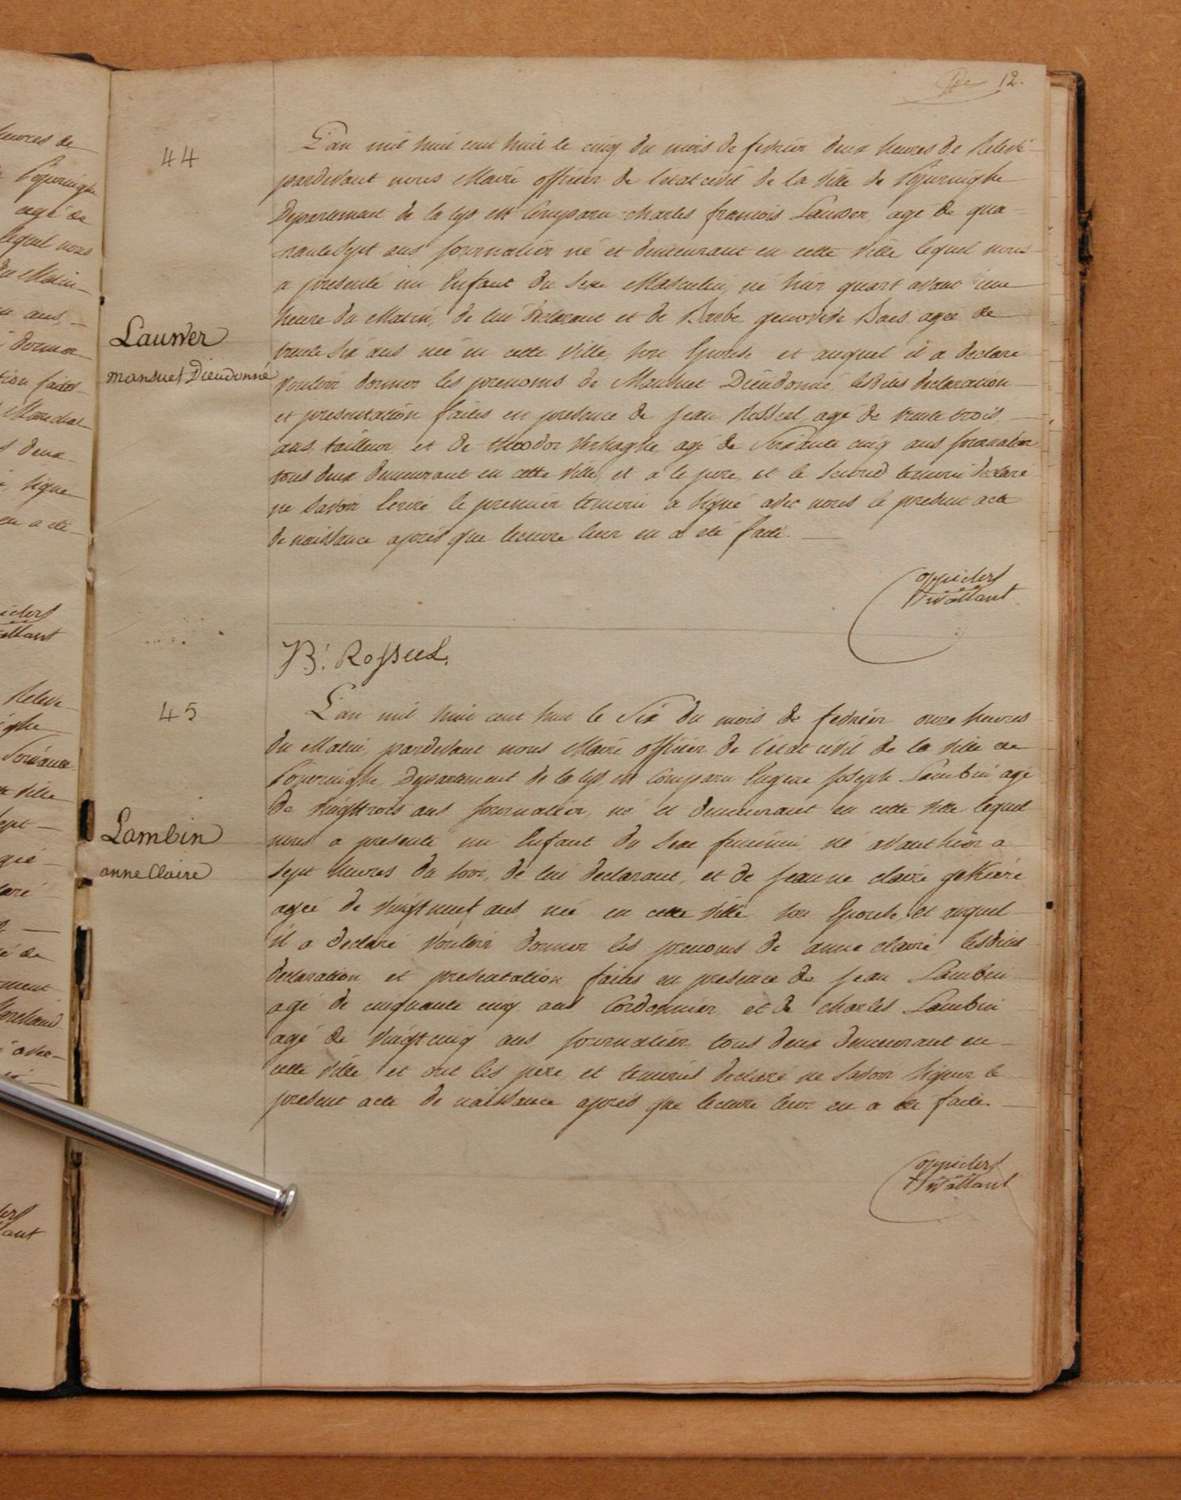 12.
44
L'an mil huit cent huit le cinq du mois de fevrier deux heures de Relevé
pardevant nous Maire officier de l'etat civil de la ville de Poperinghe
Departement de la Lys est Comparu charles francois Lauwer, agé de qua-
rantesept ans journalier né et demeurant en cette ville lequel nous
a presenté un Enfant du Sexe Masculin, né hier quart avant une
heure du Matin, de lui declarant et de Barbe genoveve Baes agée de
Lauwer
trente six ans née en cette ville son Epouse et auquel il a declaré
mansuet Dieudonné
vouloir donner les prenoms de Mansuet Dieudonné, lesdites declaration
et presentation faites en presence de jean Rosseel agé de trente trois
ans tailleur et de theodor Verhaghe agé de Soixante cinq ans journalier
tous deux demeurant en cette ville, et a le pere et le Second temoin declaré
ne savoir Ecrire le premier temoin a Signé avec nous le present acte
de naissance après que lecture leur en a été faite.
B. Rosseel.
45
L'an mil huit cent huit le Six du mois de fevrier onze heures
du Matin, pardevant nous Maire officier de l'etat civil de la ville de
Poperinghe, Departement de la Lys est Comparu Eugene joseph Lambin agé
de vingttrois ans journalier né et demeurant en cette ville lequel
Lambin
nous a presenté un Enfant du Sexe feminin né avanthier a
anne Claire
sept heures du soir, de lui declarant, et de jeanne claire
agée de vingtneuf ans née en cette ville son Epouse, et auquel
il a declaré vouloir donner les prenoms de anne claire lesdites
declaration et presentation faites en presence de jean Lambin
agé de cinquante cinq ans Cordonnier et de charles Lambin
agé de vingtcinq ans journalier tous deux demeurant en
cette ville et ont les pere et temoins declaré ne savoir signer le
present acte de naissance après que lecture leur en a été faite.